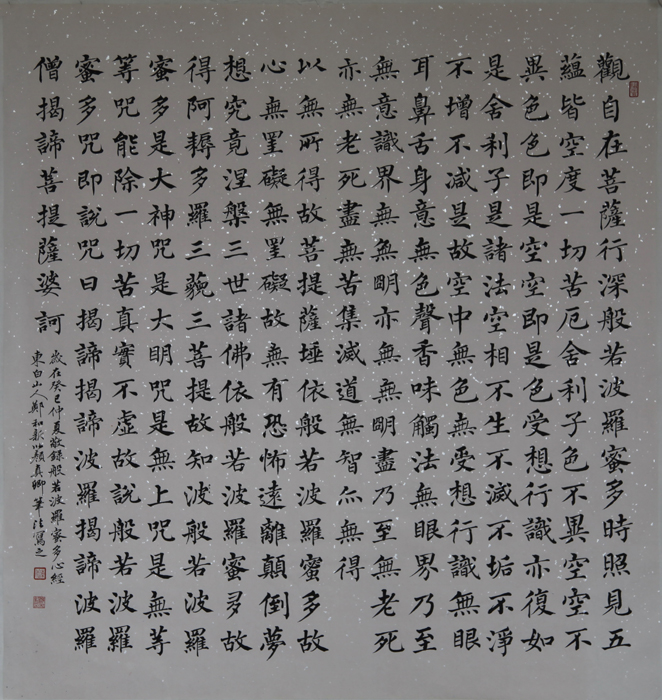 觀自在菩薩行深般若波羅蜜多時照見五
蘊皆空度一切苦厄舍利子色不異空空不
異色色即是空空即是色受想行識亦復如
是舍利子是諸法空相不生不滅不垢不淨
不增不減是故空中無色無受想行識無眼
耳鼻舌身意無色聲香味觸法無眼界乃至
無意識界無無明亦無無明盡乃至無老死
亦無老死盡無苦集滅道無智亦無得
以無所得故菩提薩埵依般若波羅蜜多故
心無罣礙無罣礙故無有恐怖遠離顛倒夢
想究竟涅槃三世諸佛依般若波羅蜜多故
得阿耨多羅三藐三菩提故知波般若波羅
蜜多是大神咒是大明咒是無上咒是無等
等咒能除一切苦真實不虛故說般若波羅
蜜多咒即說咒曰揭諦揭諦波羅揭諦波羅
僧揭諦菩提薩婆訶
歲在癸巳仲夏敬錄般若波羅蜜多心經
東白山人鄭和顏真卿筆法寫之